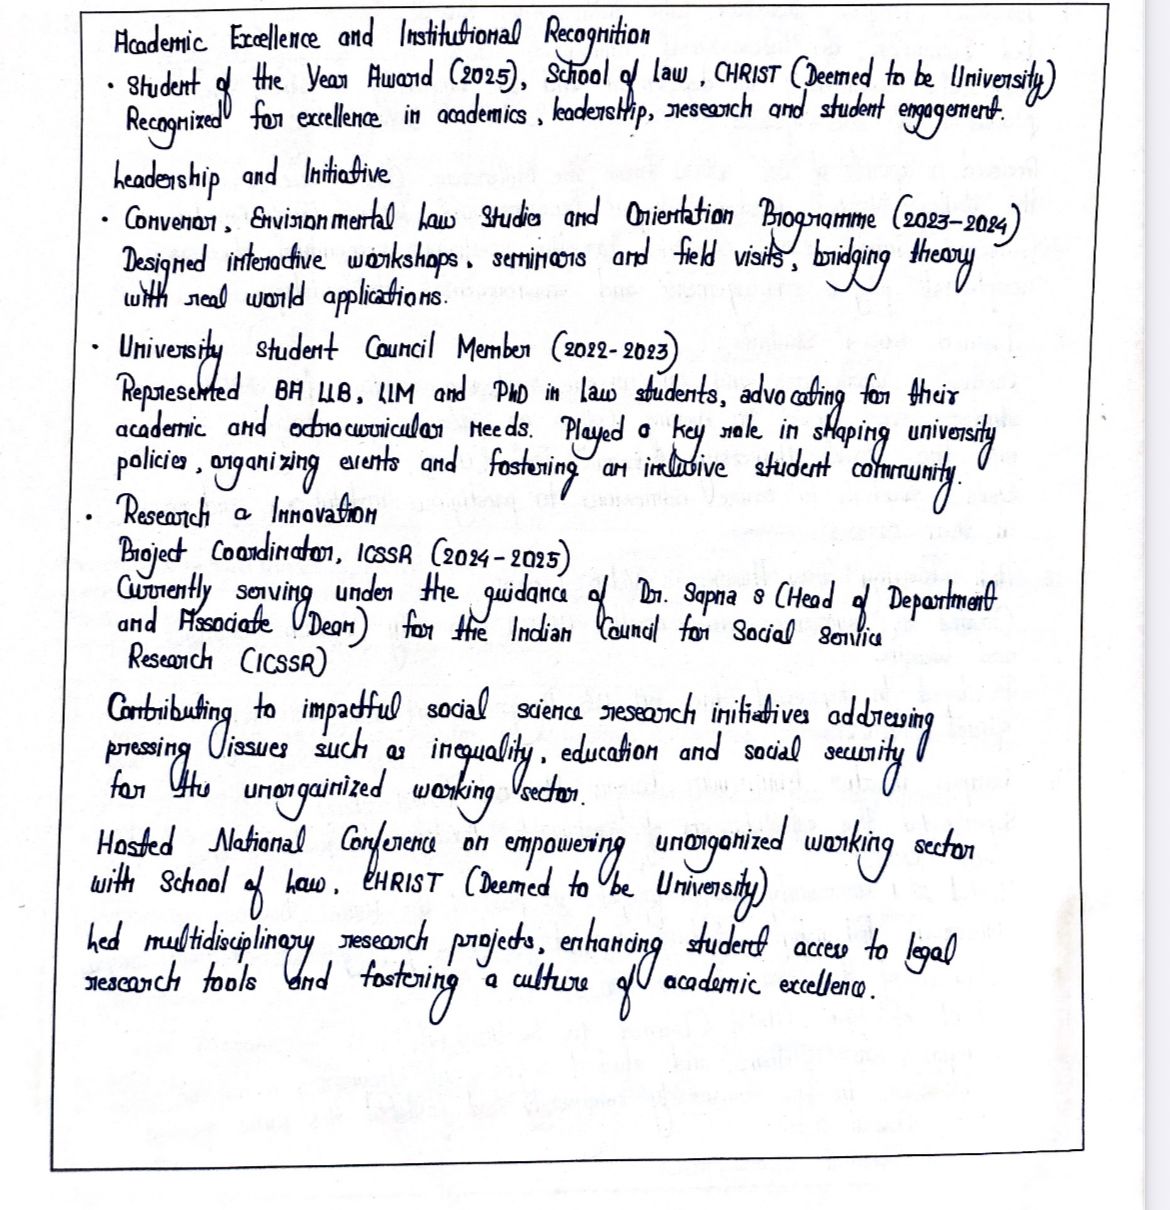 Academic Excellence and Institutional Recognition
• Student of the Year Award (2025), School of Law, CHRIST (Deemed to be University)
Recognized for excellence in academics, leadership, research and student engagement.
Leadership and Initiative
• Convenor, Environmental Law Studies and Orientation Programme (2023-2024)
Designed interactive workshops, seminars and field visits, bridging theory
with real world applications.
• University Student Council Member (2022-2023)
Represented BA LLB, LLM and PhD in Law students, advocating for their
academic and extracurricular needs. Played a key role in shaping university
policies, organizing events and fostering an inclusive student community.
• Research & Innovation
Project Coordinator, ICSSR (2024-2025)
Currently serving under the guidance of Dr. Sapna S (Head of Department
and Associate Dean) for the Indian Council for Social Service
Research (ICSSR)
Contributing to impactful social science research initiatives addressing
pressing issues such as inequality, education and social security
for the unorgainized working sector.
Hosted National Conference on empowering unorganized working sector
with School of Law, CHRIST (Deemed to be University)
Led multidisciplinary research projects, enhancing student access to legal
research tools and fostering a culture of academic excellence.